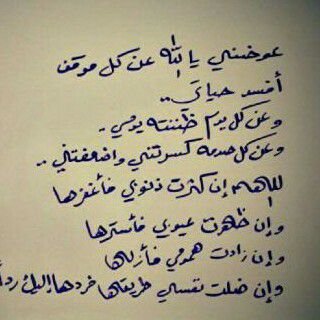 عوضني يا الله عن كل موقف
أفسد حياتي ..
وعن كل يوم ظننته يومي ..
وعن كل صدمه كسرتني واضعفتني ..
اللهم إن كثرت ذنوبي فأغفرها
وإن ظهرت عيوبي فأسترها
وإن زادت همومي فأزلها
وإن ضلت نفسي طريقها فردها إليك رداً